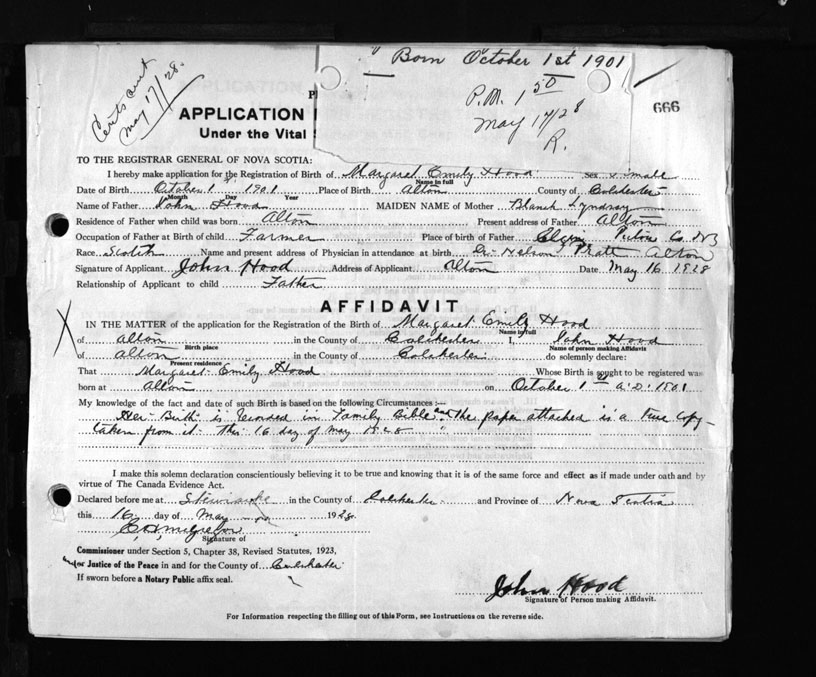 Born October 1st 1901
Certs sent
May 17/28.
P.M. 1 50
May 17/28
R.
666
P
APPLICATION
Under the Vital S
TO THE REGISTRAR GENERAL OF NOVA SCOTIA:
I hereby make application for the Registration of Birth of Margaret Emily Hood Sex Female
Name in full
Date of Birth October 1st 1901 Place of Birth Alton County of Colchester
Month Day Year
Name of Father John Hood MAIDEN NAME of Mother Blanch Lyndsay
Residence of Father when child was born Alton Present address of Father Alton
Occupation of Father at Birth of child Farmer Place of birth of Father Pictou Co NS
Race Scotch Name and present address of Physician in attendance at birth Dr. Nelson Pratt Alton
Signature of Applicant John Hood Address of Applicant Alton Date May 16 1928
Relationship of Applicant to child Father
AFFIDAVIT
IN THE MATTER of the application for the Registration of the Birth of Margaret Emily Hood
Name in full
of Alton in the County of Colchester I, John Hood
Birth place Name of person making Affidavit
of Alton in the County of Colchester do solemnly declare:
Present residence
That Margaret Emily Hood Whose Birth is sought to be registered was
born at Alton on October 1st A.D. 1901
My knowledge of the fact and date of such Birth is based on the following Circumstances:—
Her Birth is recorded in Family Bible and the paper attached is a true copy
taken from it this 16 day of May 1928
I make this solemn declaration conscientiously believing it to be true and knowing that it is of the same force and effect as if made under oath and by
virtue of The Canada Evidence Act.
Declared before me at Stewiacke in the County of Colchester and Province of Nova Scotia
this 16 day of May 1928
Signature of
Commissioner under Section 5, Chapter 38, Revised Statutes, 1923,
and/or Justice of the Peace in and for the County of Colchester
If sworn before a Notary Public affix seal.
John Hood
Signature of Person making Affidavit.
For Information respecting the filling out of this Form, see Instructions on the reverse side.